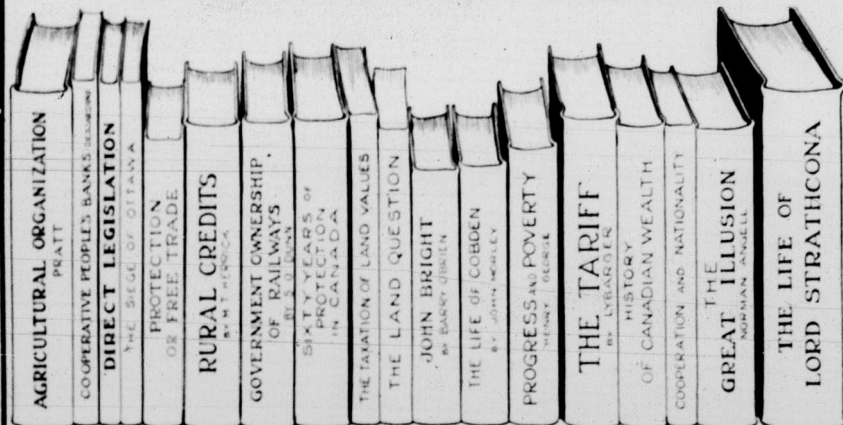 AGRICULTURAL ORGANIZATION
PRATT
COOPERATIVE PEOPLE'S BANKS
DIRECT LEGISLATION
THE SIEGE OF OTTAWA
PROTECTION
OR FREE TRADE
RURAL CREDITS
BY M T HERRICK
GOVERNMENT OWNERSHIP
OF RAILWAYS
BY S O DUNN
SIXTY YEARS OF
PROTECTION
IN CANADA
THE TAXATION OF LAND VALUES
THE LAND QUESTION
JOHN BRIGHT
BY BARRY O'BRIEN
THE LIFE OF COBDEN
BY JOHN MORLEY
PROGRESS AND POVERTY
HENRY GEORGE
THE TARIFF
BY LYBARGER
HISTORY
OF CANADIAN WEALTH
COOPERATION AND NATIONALITY
THE
GREAT ILLUSION
NORMAN ANGELL
THE LIFE OF
LORD STRATHCONA